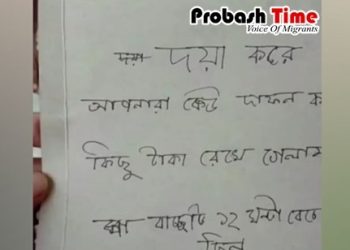 Probash Time
Voice Of Migrants
দয়া দয়া করে
আপনারা কেউ দাফন ক
কিছু টাকা রেখে গেলাম
বাচ্চাটি ১২ ঘন্টা বেচে
ছিল